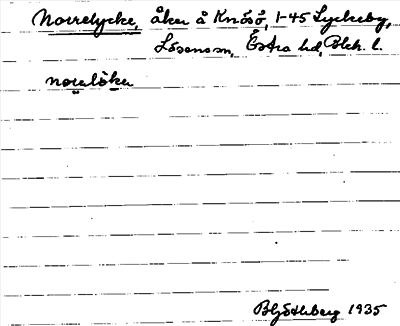 Norrelycke, åker å Knösö, 1-45 Lyckeby,
Lösens sn, Östra hd, Blek. l.
norelöke
B Götlberg 1935